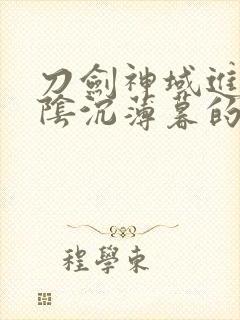 刀劍神域進
陰沉薄暮的
程學東